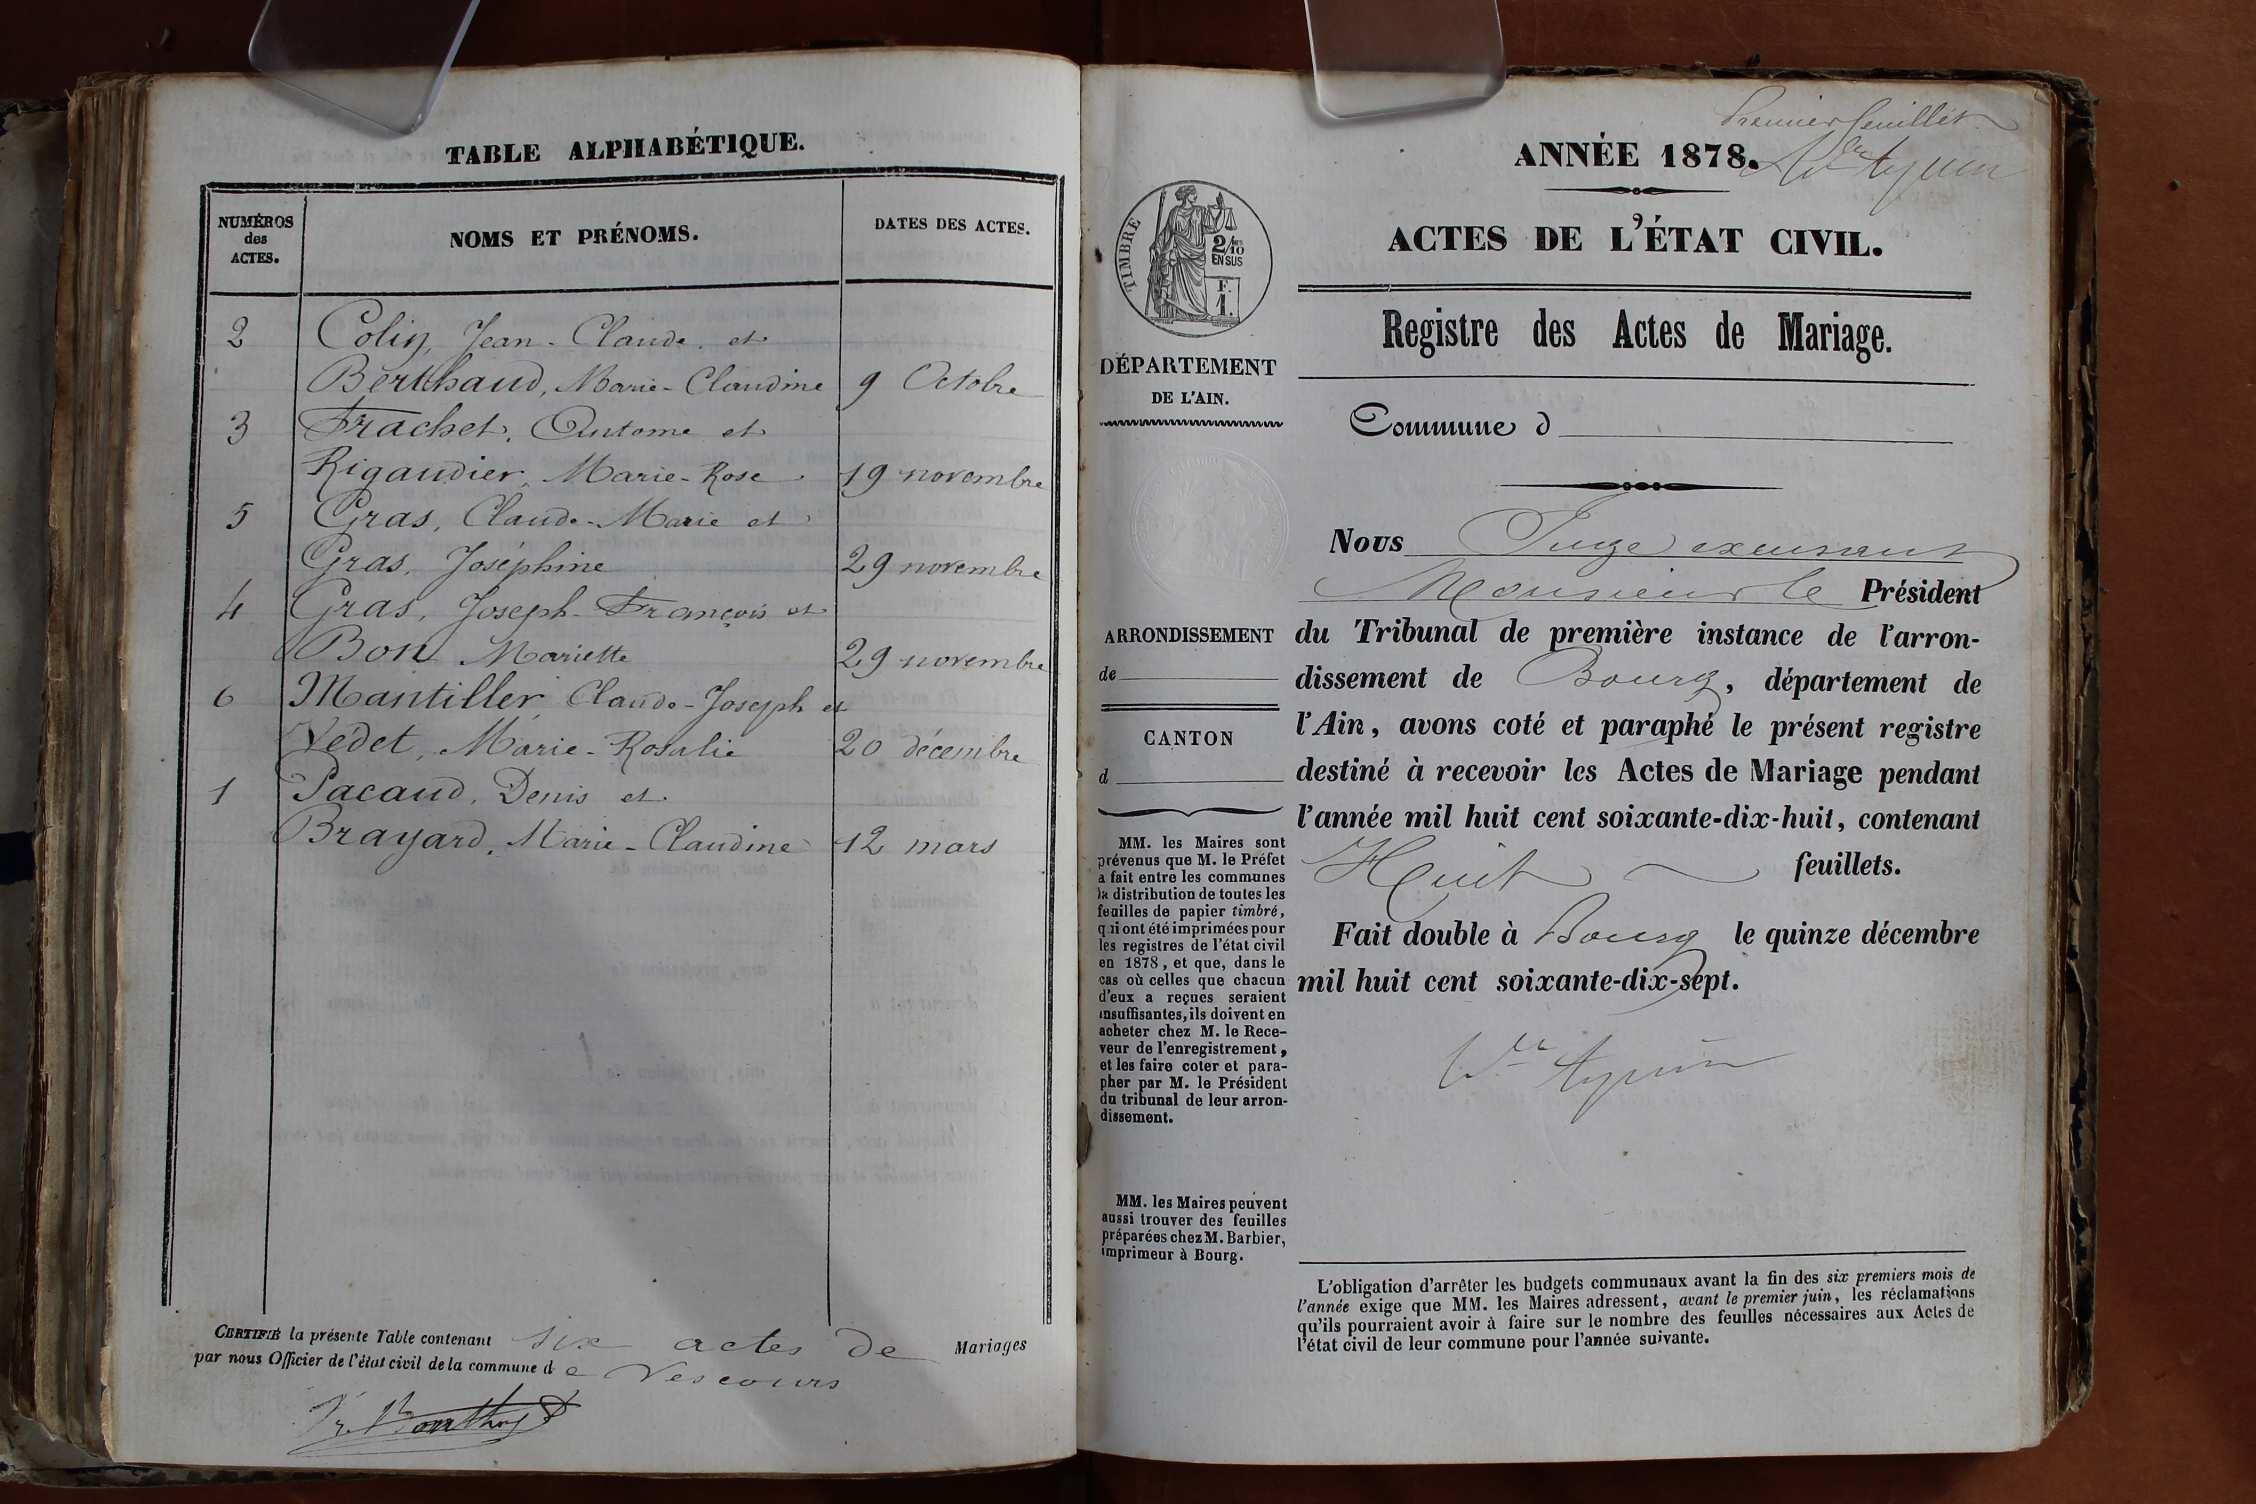 TABLE ALPHABÉTIQUE.
NUMÉROS
des
ACTES.
NOMS ET PRÉNOMS.
DATES DES ACTES.
2 Colin, Jean-Claude et
Berthaud, Marie-Claudine 9 Octobre
3 Frachet, Antome et
Rigaudier, Marie-Rose 19 novembre
5 Gras, Claude-Marie et
Gras, Joséphine 29 novembre
4 Gras, Joseph-François et
Bon Mariette 29 novembre
6 Mantiller Claude-Joseph et
Vedet, Marie-Rosalie 20 décembre
1 Pacaud, Denis et
Brayard, Marie-Claudine 12 mars
CERTIFIÉ la présente Table contenant six actes de Mariages
par nous Officier de l'état civil de la commune de Vescours
Premier feuillet
ANNÉE 1878.
ACTES DE L'ÉTAT CIVIL.
TIMBRE
2/10
EN SUS
F.
1.
Registre des Actes de Mariage.
DÉPARTEMENT
DE L'AIN.
Commune d
Nous Juge excusant
Monsieur le Président
du Tribunal de première instance de l'arron-
dissement de Bourg, département de
l'Ain, avons coté et paraphé le présent registre
destiné à recevoir les Actes de Mariage pendant
l'année mil huit cent soixante-dix-huit, contenant
Huit feuillets.
Fait double à Bourg le quinze décembre
mil huit cent soixante-dix-sept.
ARRONDISSEMENT
de
CANTON
d
MM. les Maires sont
prévenus que M. le Préfet
a fait entre les communes
la distribution de toutes les
feuilles de papier timbré,
qui ont été imprimées pour
les registres de l'état civil
en 1878, et que, dans le
cas où celles que chacun
d'eux a reçues seraient
insuffisantes, ils doivent en
acheter chez M. le Rece-
veur de l'enregistrement,
et les faire coter et para-
pher par M. le Président
du tribunal de leur arron-
dissement.
MM. les Maires peuvent
aussi trouver des feuilles
préparées chez M. Barbier,
imprimeur à Bourg.
L'obligation d'arrêter les budgets communaux avant la fin des six premiers mois de
l'année exige que MM. les Maires adressent, avant le premier juin, les réclamations
qu'ils pourraient avoir à faire sur le nombre des feuilles nécessaires aux Actes de
l'état civil de leur commune pour l'année suivante.